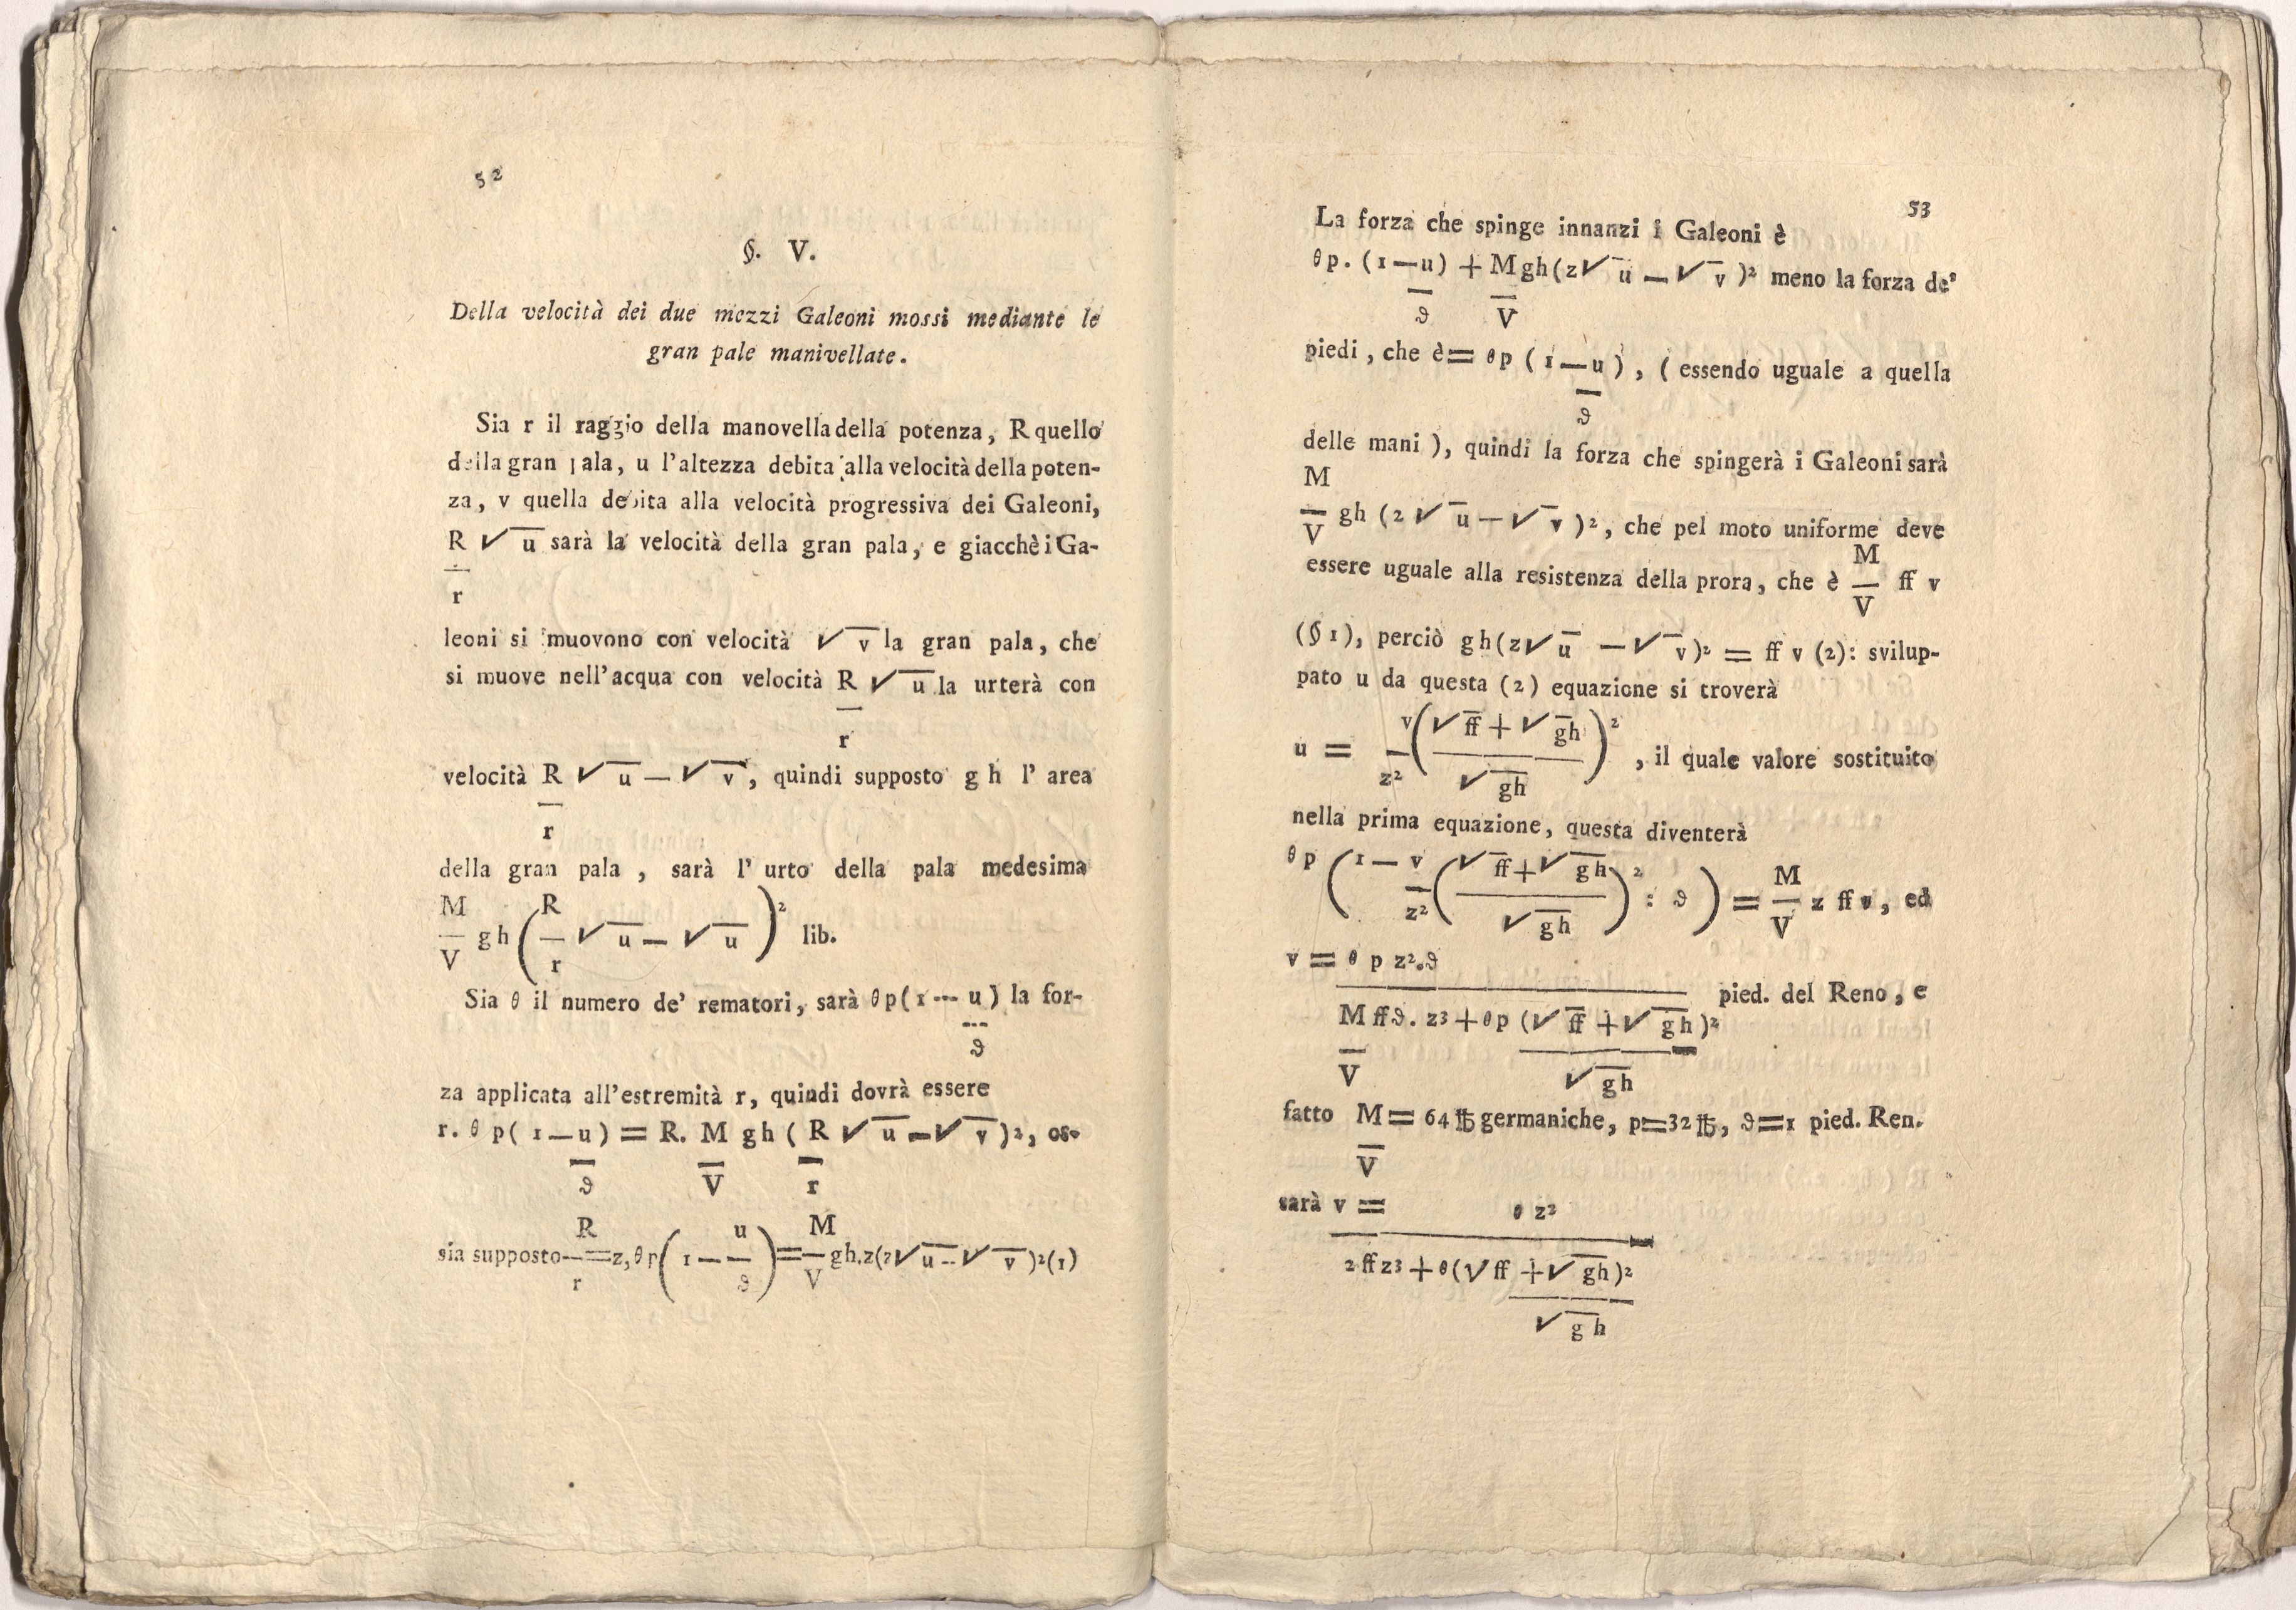 52
§. V.
Della velocità dei due mezzi Galeoni mossi mediante le
gran pale manivellate.
Sia r il raggio della manovella della potenza, R quello
della gran pala, u l'altezza debita alla velocità della poten-
za, v quella debita alla velocità progressiva dei Galeoni,
R √u sarà la velocità della gran pala, e giacchè i Ga-
—
r
leoni si muovono con velocità √v la gran pala, che
si muove nell'acqua con velocità R √u la urterà con
—
r
velocità R √u — √v, quindi supposto g h l' area
—
r
della gran pala, sarà l' urto della pala medesima
M/V gh (R/r √u — √u)² lib.
Sia θ il numero de' rematori, sarà θ p(1 --- u) la for-
---
ϑ
za applicata all'estremità r, quindi dovrà essere
r. θ p( 1 — u) = R. M gh ( R √u — √v )², os-
— — —
ϑ V r
sia supposto R/r = z, θ p(1 — u/ϑ) = M/V gh.z(z√u -- √v)²(1)
53
La forza che spinge innanzi i Galeoni è
θ p. (1 — u) + M gh (z√u — √v)² meno la forza de'
— —
ϑ V
piedi, che è = θ p (1 — u), (essendo uguale a quella
—
ϑ
delle mani), quindi la forza che spingerà i Galeoni sarà
M/V gh (2 √u — √v)², che pel moto uniforme deve
essere uguale alla resistenza della prora, che è M/V ff v
(§ 1), perciò gh(z√u — √v)² = ff v (2): svilup-
pato u da questa (2) equazione si troverà
u = v/z² ((√ff + √gh)/√gh)², il quale valore sostituito
nella prima equazione, questa diventerà
θ p (1 — v/z² ((√ff + √gh)/√gh)² : ϑ) = M/V z ff v, ed
v = θ p z².ϑ
———————— pied. del Reno, e
M ffϑ. z³ + θ p (√ff + √gh)²
— ————
V √gh
fatto M = 64 ℔ germaniche, p=32 ℔, ϑ=1 pied. Ren.
—
V
sarà v = θ z²
————————
2 ff z³ + θ(√ff + √gh)²
————
√gh